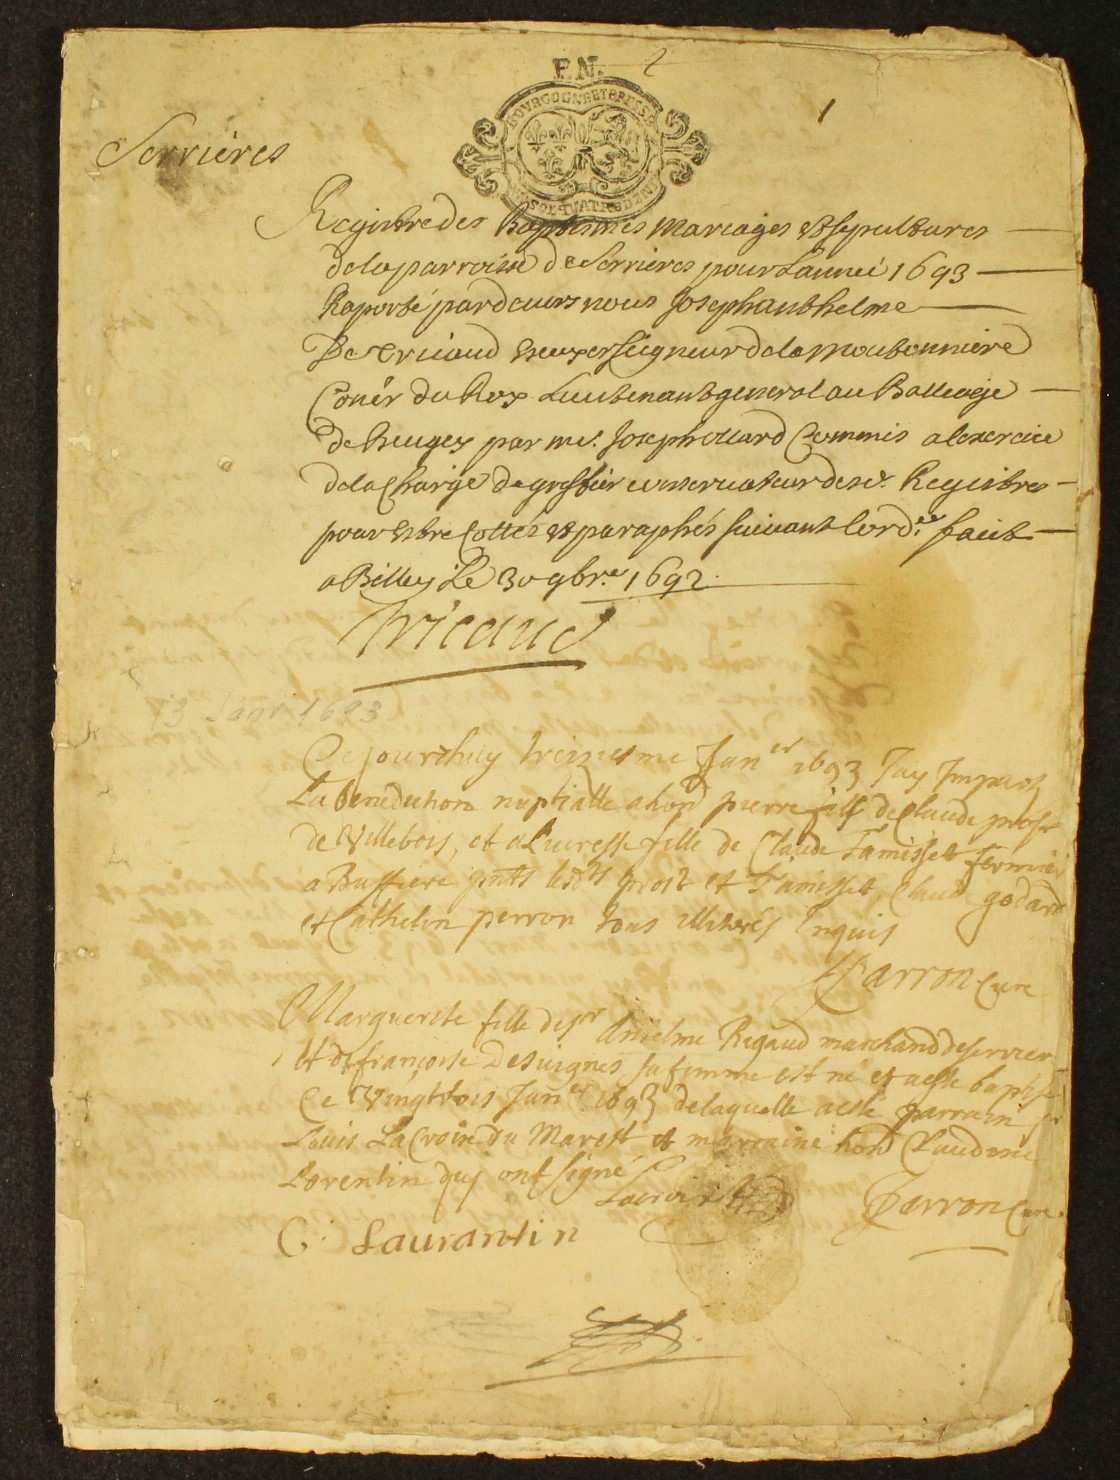 F.N. 2
1
BOURGOGNE ET BRESSE
SOL QUATRE DEN
Serrieres
Registre des Baptesmes Mariages et sepultures
de la parroisse de Serrieres pour Lannée 1693
Raporté pardeuers nous Joseph anthelme
De Tricaud seigneur de la moubonniere
Coner du Roy Lieutenant general au Balliage
de Beugey par me. Joseph commis a lexercice
de la Charge de greffier conservateur desd. Registres
pour estre Cottés et paraphés suiuant lord.ce faict
a Belley Le 30 9bre. 1692
Tricaud
13 Janv 1693
Ce jourdhuy treiziesme Jan.er 1693 Jay
La benediction nuptialle a hon. pierre fils de Claude prost
de Villebois, et a fille de Claude Tamisset fermier
a Buffiere pnts lesdts prost et Tamisset, Claude godard
et Cathelin perron tous illiterés Enquis
Parron Cure
Marguerite fille de sr Anselme Rigaud marchand de serrier
et de francoise Desuignes sa femme est né et a este baptisé
Ce Vingt trois Jan.er 1693 de laquelle a esté parrain sr
Louis La Croix du Marest et marraine hon. Claudine
Lorentin quj ont signé
Lacroix
Parron Cure.
C. Laurantin